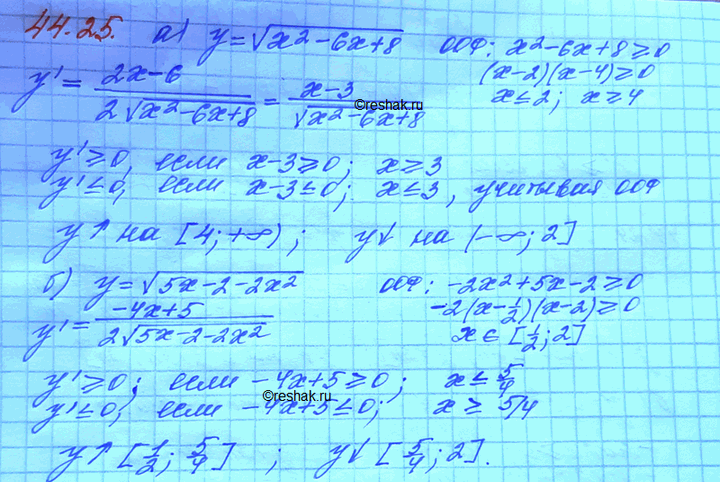 44.25. а) y=√(x²-6x+8) ООФ: x²-6x+8≥0
(x-2)(x-4)≥0
y' = (2x-6)/(2√(x²-6x+8)) = (x-3)/√(x²-6x+8) x≤2; x≥4
©reshak.ru
y'≥0, если x-3≥0; x≥3
y'≤0, если x-3≤0; x≤3, учитывая ООФ
y↑ на [4;+∞); y↓ на (-∞;2]
б) y=√(5x-2-2x²) ООФ: -2x²+5x-2≥0
-2(x-1/2)(x-2)≥0
y' = (-4x+5)/(2√(5x-2-2x²)) x∈[1/2;2]
y'≥0; если -4x+5≥0; x≤5/4
©reshak.ru
y'≤0; если -4x+5≤0; x≥5/4
y↑ [1/2; 5/4]; y↓ [5/4; 2].